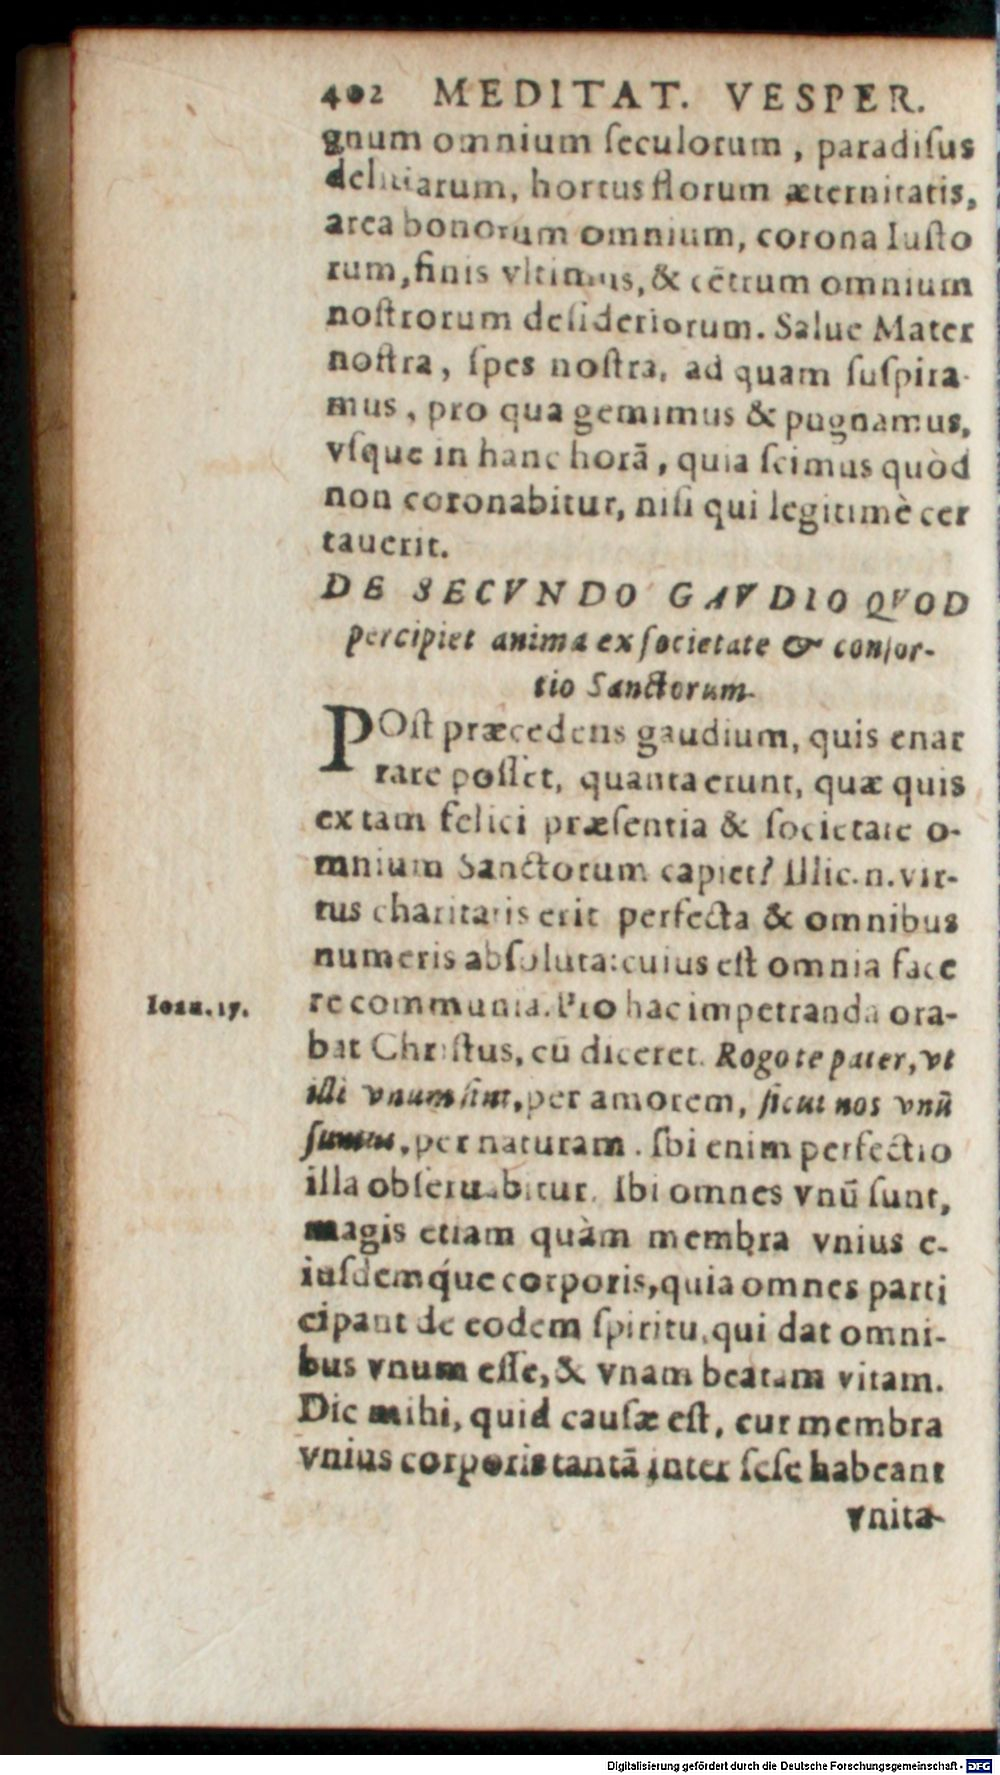 402 MEDITAT. VESPER.
gnum omnium ſeculorum, paradiſus
delitiarum, hortus florum æternitatis,
arca bonorum omnium, corona Iuſto
rum, finis vltimus, & cētrum omnium
noſtrorum deſideriorum. Salue Mater
noſtra, ſpes noſtra, ad quam ſuſpira-
mus, pro qua gemimus & pugnamus,
vſque in hanc horā, quia ſcimus quòd
non coronabitur, niſi qui legitimè cer
tauerit.
DE SECVNDO GAVDIO QVOD
percipiet anima ex ſocietate & conſor-
tio Sanctorum.
POſt præcedens gaudium, quis enar
rare poſſet, quanta erunt, quæ quis
ex tam felici præſentia & ſocietate o-
mnium Sanctorum capiet? Illic. n. vir-
tus charitatis erit perfecta & omnibus
numeris abſoluta: cuius eſt omnia face
re communia. Pro hac impetranda ora-
Ioan. 17.
bat Chriſtus, cū diceret. Rogo te pater, vt
illi vnum ſint, per amorem, ſicut nos vnū
ſumus, per naturam. Ibi enim perfectio
illa obſeruabitur. Ibi omnes vnū ſunt,
magis etiam quàm membra vnius e-
iuſdemq́ue corporis, quia omnes parti
cipant de eodem ſpiritu, qui dat omni-
bus vnum eſſe, & vnam beatam vitam.
Dic mihi, quid cauſæ eſt, cur membra
vnius corporis tantā inter ſeſe habeant
vnita-
Digitalisierung gefördert durch die Deutsche Forschungsgemeinschaft - DFG